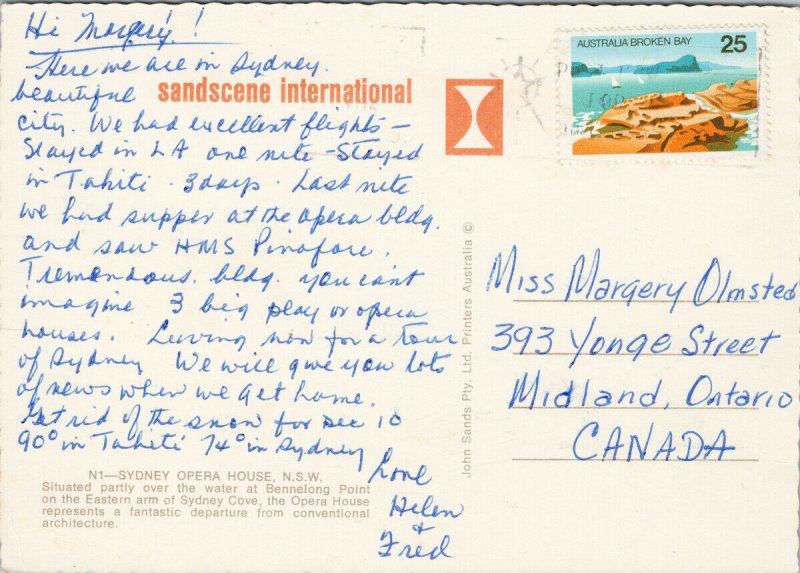 Hi Margery!
Here we are in Sydney.
beautiful
sandscene international
city. We had excellent flights –
Stayed in LA one nite – Stayed
in Tahiti - 3 days. Last nite
we had supper at the opera bldg.
and saw HMS Pinafore.
Tremendous bldg. you can't
imagine 3 big play or opera
houses. Leaving now for a tour
of Sydney We will give you lots
of news when we get home.
Get rid of the snow for Dec 10
90° in Tahiti 74° in Sydney
Love
Helen
&
Fred
N1—SYDNEY OPERA HOUSE, N.S.W.
Situated partly over the water at Bennelong Point
on the Eastern arm of Sydney Cove, the Opera House
represents a fantastic departure from conventional
architecture.
John Sands Pty. Ltd. Printers Australia ©
AUSTRALIA BROKEN BAY 25
Miss Margery Olmsted
393 Yonge Street
Midland, Ontario
CANADA